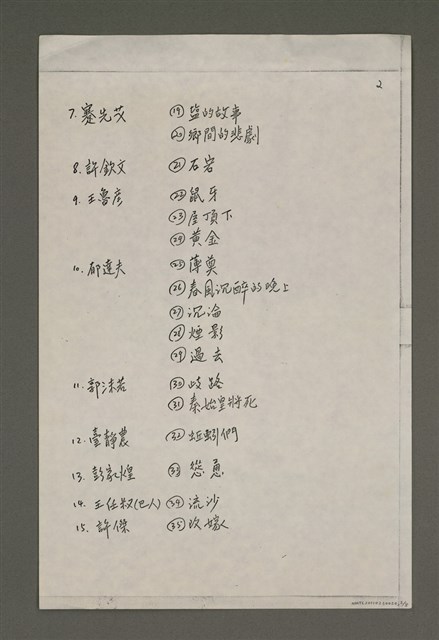 2
7. 蹇先艾 ⑲ 鹽的故事
⑳ 鄉間的悲劇
8. 許欽文 ㉑ 石宕
9. 王魯彥 ㉒ 鼠牙
㉓ 屋頂下
㉔ 黃金
10. 郁達夫 ㉕ 薄奠
㉖ 春風沉醉的晚上
㉗ 沉淪
㉘ 煙影
㉙ 過去
11. 郭沫若 ㉚ 歧路
㉛ 秦始皇將死
12. 臺靜農 ㉜ 蚯蚓們
13. 彭家煌 ㉝ 慫恿
14. 王任叔(巴人) ㉞ 流沙
15. 許傑 ㉟ 改嫁